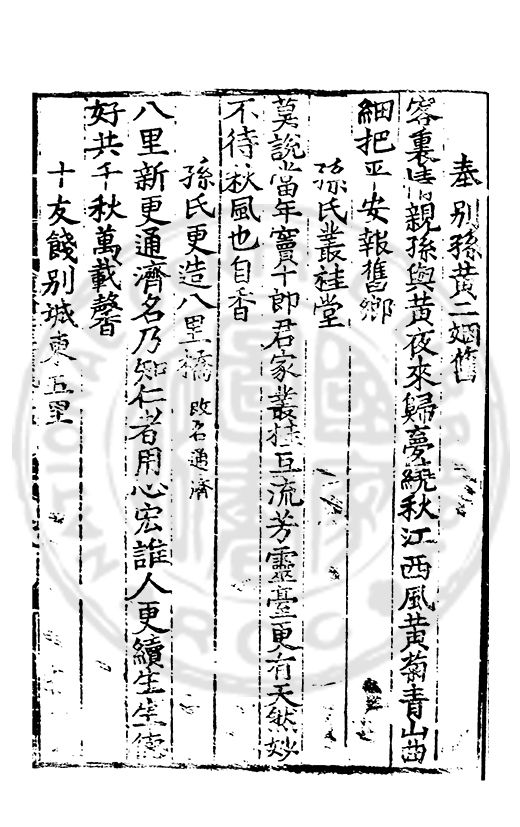 奉別孫黃二姻舊
客裏情親孫與黃夜來歸夢繞秋江西風黃菊青山曲
細把平安報舊鄉
孫氏叢桂堂
莫說當年竇十郎君家叢桂亙流芳靈臺更有天然妙
不待秋風也自香
孫氏更造八里橋 改名通濟
八里新更通濟名乃知仁者用心宏誰人更續生生德
好共千秋萬載馨
十友餞別城東五里